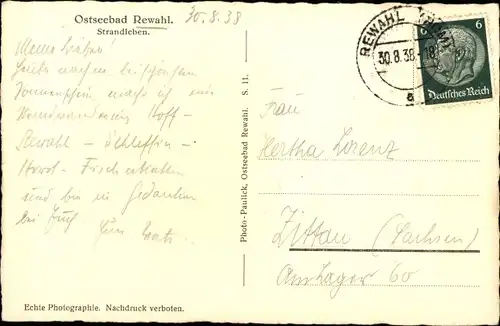 Ostseebad Rewahl.
Strandleben.
30.8.38
Meine Lieben!
Heute nach
Sonnenschein mach ich
Wanderung Hoff –
Rewahl –
Horst – Fischerkaten
und bin in Gedanken
bei Euch
Echte Photographie. Nachdruck verboten.
Photo-Paulick, Ostseebad Rewahl. S. 11.
REWAHL
30.8.38-18
a
6 6
Deutsches Reich
Frau
Hertha Lorenz
Zittau (Sachsen)
Am Lager 60